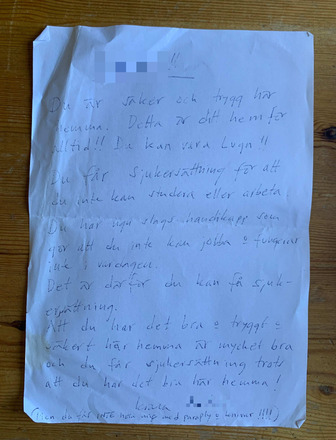 !!
Du är säker och trygg här
hemma. Detta är ditt hem för
Alltid!! Du kan vara Lugn!!
Du får sjukersättning för att
du inte kan studera eller arbeta
Du har ngd slags handikapp som
gör att du inte kan jobba o fungerar
inte i vardagen.
Det är därför du kan få sjuk-
ersättning.
Att du har det bra o tryggt o
säkert här hemma är mycket bra
och du får sjukersättning trots
att du har det bra här hemma!
Kram
(Men du får inte hota mig med paraply o hammare !!!!)